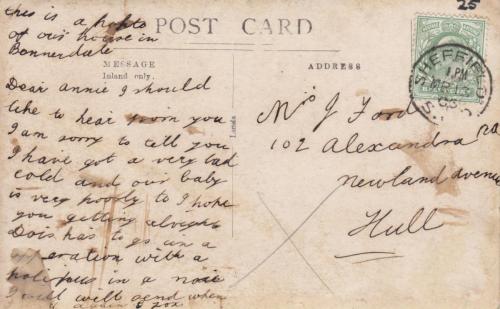 this is a photo
of our house in
Bonnerdale
25
POST CARD
MESSAGE
Inland only.
ADDRESS
Dear annie I should
like to hear from you
I am sorry to tell you
I have got a very bad
cold and our baby
is very poorly to I hope
you getting alright
Doris has to go un a
opperation with a
polipus in a nose
I will will send when
Mrs J Ford
102 Alexandra Rd
Newland avenue
Hull
SHEFFIELD
1 PM